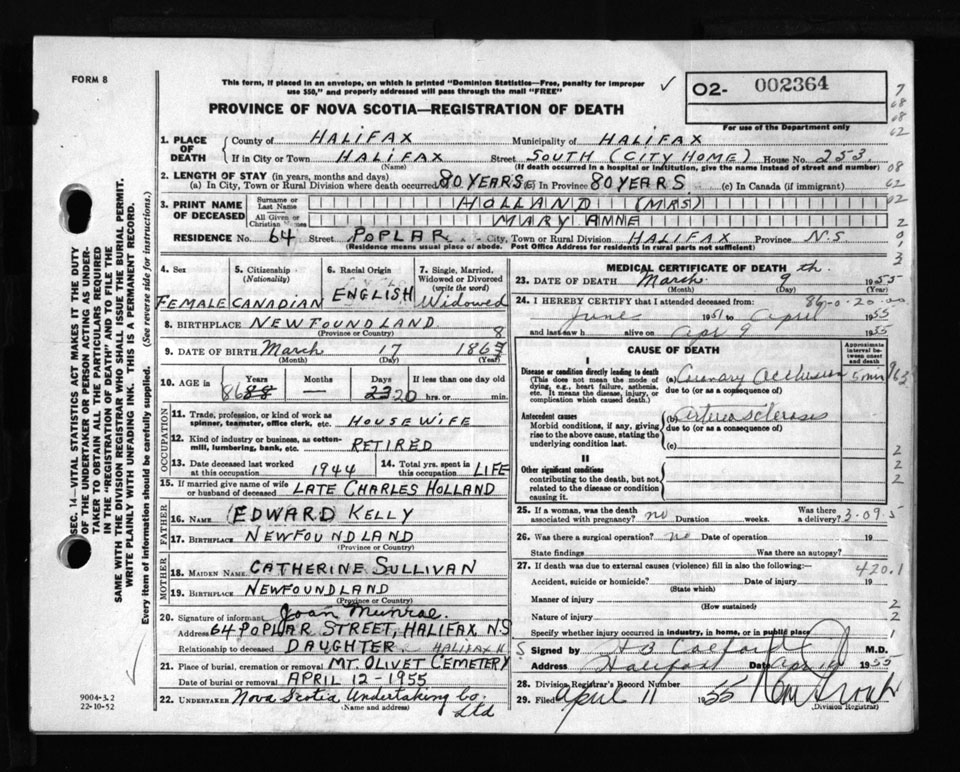 FORM 8
This form, if placed in an envelope, on which is printed "Dominion Statistics—Free, penalty for improper
use $50," and properly addressed will pass through the mail "FREE"
PROVINCE OF NOVA SCOTIA—REGISTRATION OF DEATH
02- 002364
For use of the Department only
1. PLACE OF DEATH
County of HALIFAX Municipality of HALIFAX
If in City or Town HALIFAX Street SOUTH (CITY HOME) House No. 253
(Name) (If death occurred in a hospital or institution, give the name instead of street and number)
2. LENGTH OF STAY (in years, months and days)
(a) In City, Town or Rural Division where death occurred 80 YEARS (b) In Province 80 YEARS (c) In Canada (if immigrant)
3. PRINT NAME OF DECEASED
Surname or Last Name HOLLAND (MRS)
All Given or Christian Names MARY ANNE
RESIDENCE No. 64 Street POPLAR City, Town or Rural Division HALIFAX Province N.S
(Residence means usual place of abode. Post Office Address for residents in rural parts not sufficient)
4. Sex FEMALE
5. Citizenship (Nationality) CANADIAN
6. Racial Origin ENGLISH
7. Single, Married, Widowed or Divorced (write the word) Widowed
8. BIRTHPLACE NEWFOUNDLAND
(Province or Country)
9. DATE OF BIRTH March 17 186 8
(Month) (Day) (Year)
10. AGE in Years Months Days If less than one day old
86 88 — 23 20 hrs. or min.
OCCUPATION
11. Trade, profession, or kind of work as spinner, teamster, office clerk, etc. HOUSEWIFE
12. Kind of industry or business, as cotton-mill, lumbering, bank, etc. RETIRED
13. Date deceased last worked at this occupation 1944
14. Total yrs. spent in this occupation LIFE
15. If married give name of wife or husband of deceased LATE CHARLES HOLLAND
FATHER
16. NAME EDWARD KELLY
17. BIRTHPLACE NEWFOUNDLAND
(Province or Country)
MOTHER
18. MAIDEN NAME CATHERINE SULLIVAN
19. BIRTHPLACE NEWFOUNDLAND
(Province or Country)
20. Signature of informant Joan Munroe
Address 64 POPLAR STREET, HALIFAX N.S
Relationship to deceased DAUGHTER HALIFAX
21. Place of burial, cremation or removal MT. OLIVET CEMETERY
Date of burial or removal APRIL 12-1955
22. UNDERTAKER Nova Scotia Undertaking Co. Ltd
(Name and address)
MEDICAL CERTIFICATE OF DEATH
23. DATE OF DEATH March 9 th. 1955
(Month) (Day)
24. I HEREBY CERTIFY that I attended deceased from 86-0-20
June 1951 to April 1955
and last saw h alive on Apr 9 1955
CAUSE OF DEATH
Approximate interval between onset and death
I
Disease or condition directly leading to death
(This does not mean the mode of dying, e.g., heart failure, asthenia, etc. It means the disease, injury, or complication which caused death.)
(a) Coronary Occlusion 5 min
due to (or as a consequence of)
Antecedent causes
Morbid conditions, if any, giving rise to the above cause, stating the underlying condition last.
(b) Arteriosclerosis
due to (or as a consequence of)
(c)
II
Other significant conditions
contributing to the death, but not related to the disease or condition causing it.
25. If a woman, was the death associated with pregnancy? no Duration weeks. Was there a delivery?
3-09.5
26. Was there a surgical operation? no Date of operation 19
State findings Was there an autopsy?
27. If death was due to external causes (violence) fill in also the following:—
420.1
Accident, suicide or homicide? Date of injury 19
(State which)
Manner of injury
(How sustained)
Nature of injury
Specify whether injury occurred in industry, in home, or in public place
Signed by M.D.
Address Halifax Date April 1955
28. Division Registrar's Record Number
29. Filed April 11 1955
(Division Registrar)
SEC. 14—VITAL STATISTICS ACT MAKES IT THE DUTY
OF THE UNDERTAKER OR PERSON ACTING AS UNDER-
TAKER TO OBTAIN ALL THE PARTICULARS REQUIRED
IN THE "REGISTRATION OF DEATH" AND TO FILE THE
SAME WITH THE DIVISION REGISTRAR WHO SHALL ISSUE THE BURIAL PERMIT.
WRITE PLAINLY WITH UNFADING INK. THIS IS A PERMANENT RECORD.
Every item of information should be carefully supplied. (See reverse side for instructions.)
9004-3.2
22-10-52